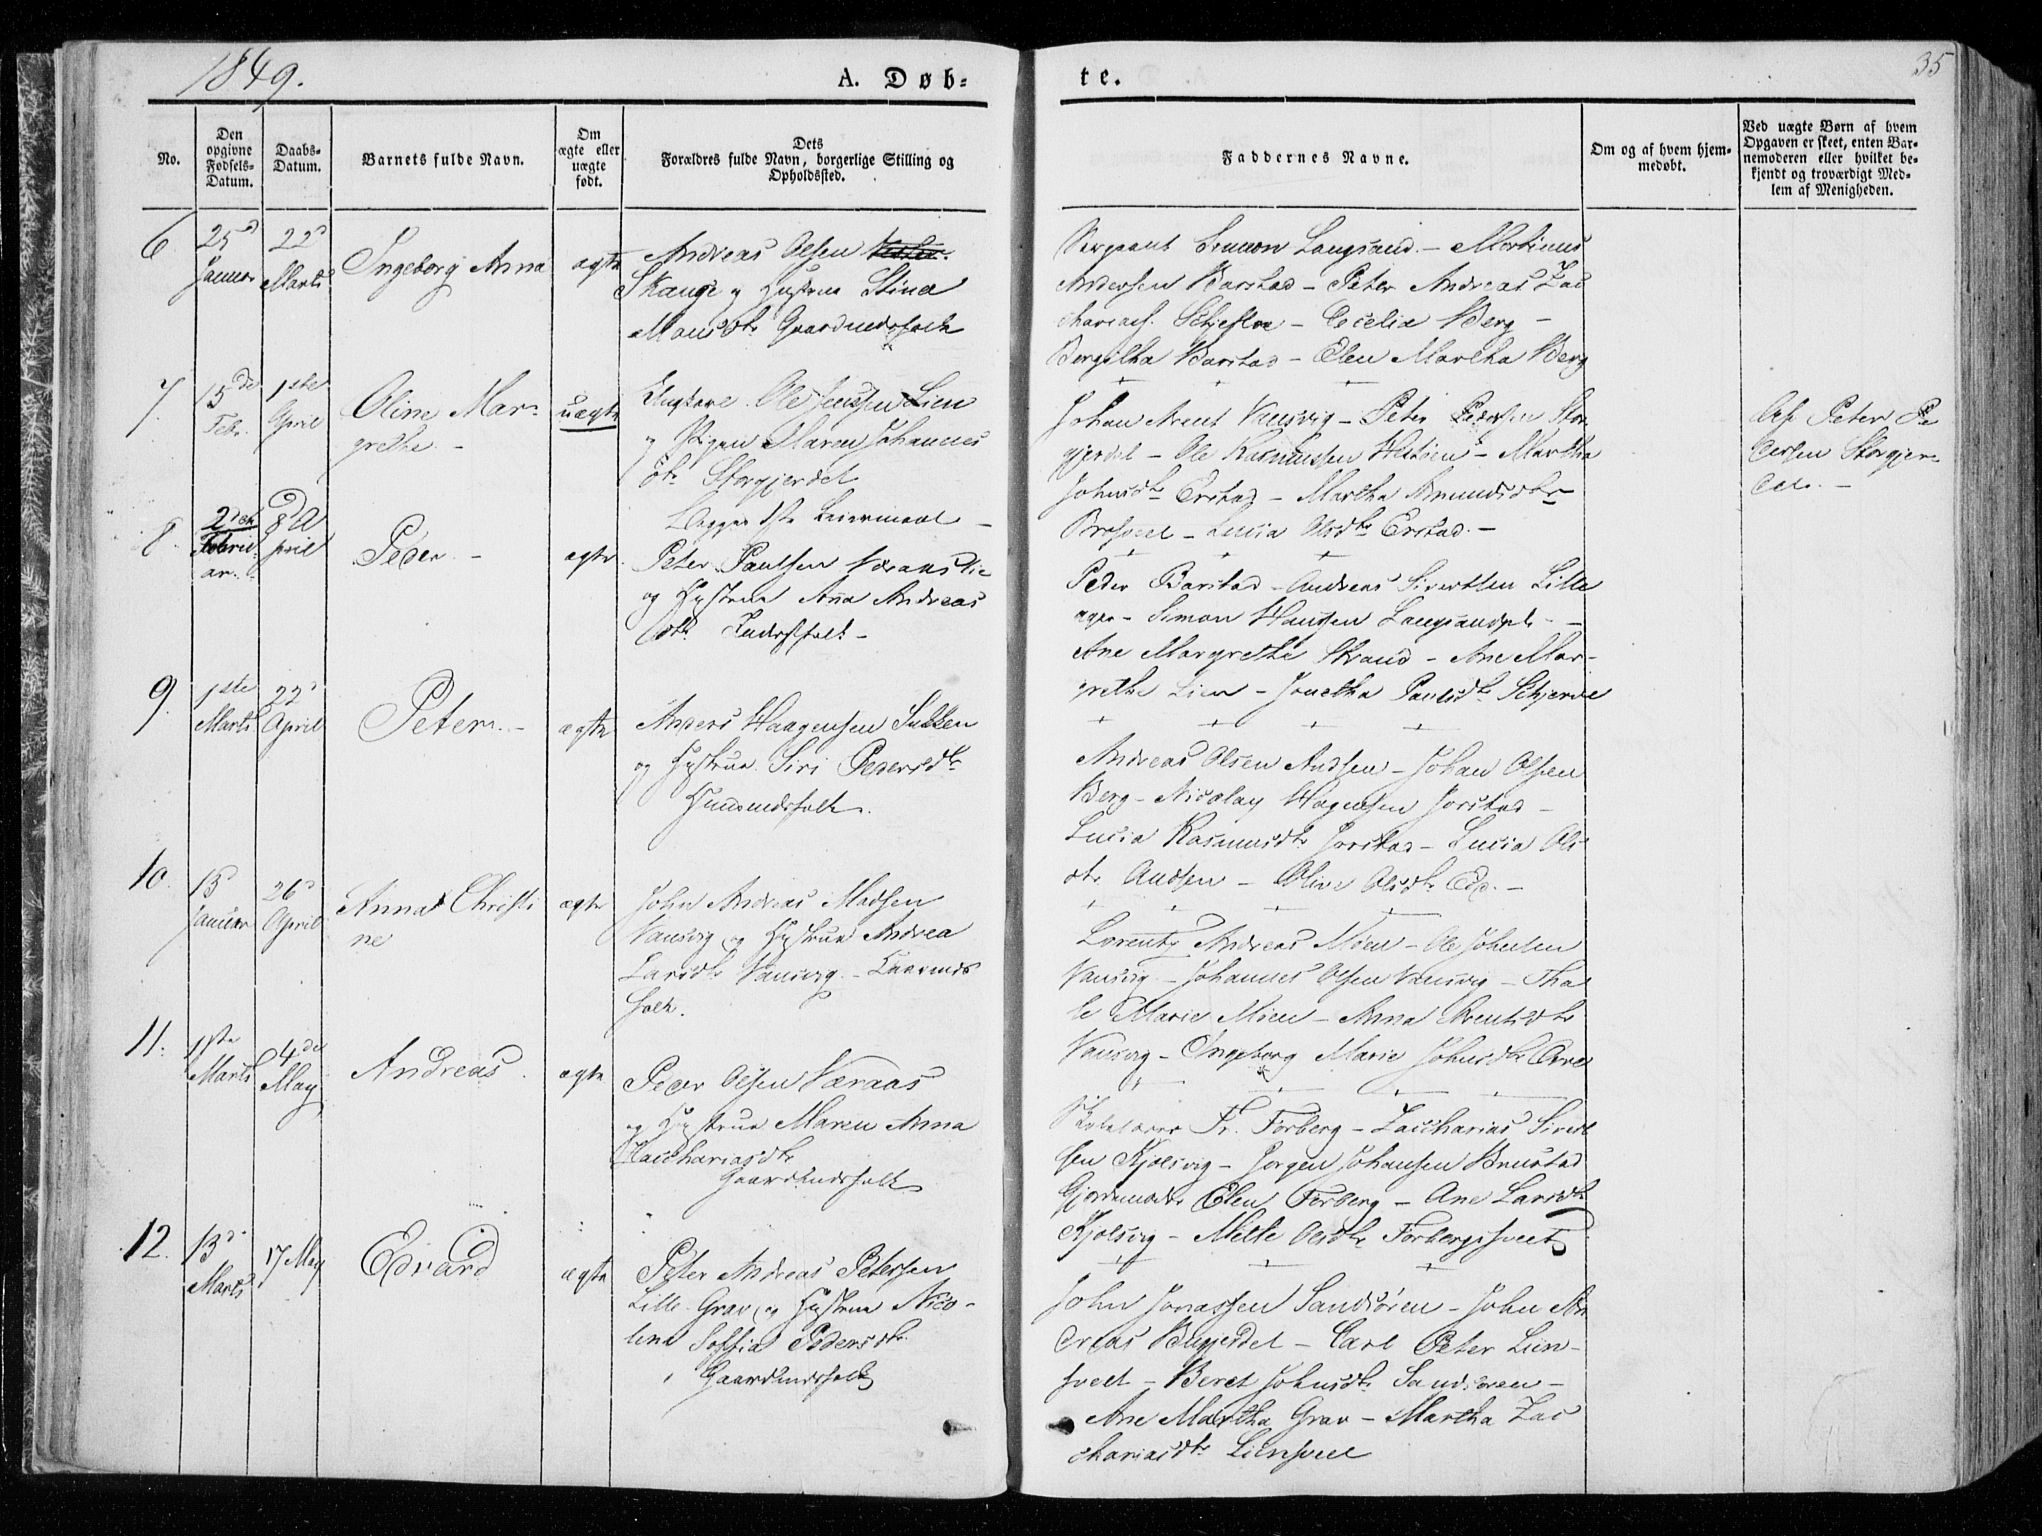 1849.
A. Døb=
te.
35
No.
Den
opgivne
Fødsels-
Datum.
Daabs-
Datum.
Barnets fulde Navn.
Om
ægte eller
uægte
født.
Dets
Forældres fulde Navn, borgerlige Stilling og
Opholdssted.
Faddernes Navne.
Om og af hvem hjem-
medøbt.
Ved uægte Børn af hvem
Opgaven er skeet, enten Bar-
nemoderen eller hvilket be-
kjendt og troværdigt Med-
lem af Menigheden.
6
25d
Januar
22d
Marts
Ingeborg Anna
ægte
Andreas Olsen
Skauge og Hustrue Stina
Monsdtr Gaardmandsfolk
Sergeant Simon Langsand - Martinus
Andersen Barstad - Peter Andreas Zac
chariass. Schjefloe - Cecelia Berg -
Bergitha Barstad - Elen Martha Berg
7.
15de
Febr.
1ste
April
Oline Mar-
grethe. -
uægte
Ungkarl Ole Jenssen Lien
og Pigen Maren Johannes
dtr Storgjerdet
Begges 1ste Leiermaal -
Johan Arent Vansvig - Peter Pedersen Stor
gjerdet - Ole Rasmussen Hestøen - Martha
Johnsdtr Erstad - Martha Amundsdtr
- Lucia Olsdtr Erstad. -
Af Peter Pe
dersen Storgjer
det. -
8.
2den
Februar
ar.
8d A
pril
Peder. -
ægte.
Peter Paulsen
og Hustrue Anna Andreas
dtr Inderstfolk -
Peder Barstad - Andreas Sivertsen Lille
ager - Simon Hansen Langsandpl. -
Ane Margrethe Strand - Ane Mar-
grethe Lien - Jonetha Paulsdtr Schjerve
9.
1ste
Marts
22d
April
Peter. -
ægte
Anders Haagensen Sulken
og Hustrue Siri Pedersdtr
Huusmandsfolk.
Andreas Olsen Andsen - Johan Olsen
Berg - Nicolay Hagensen Jorstad -
Lucia Rasmusdtr Jorstad - Lucia Ols
dtr Andsen - Olive Olsdtr Eds. -
10.
15
Januar
26d
April
Anna Christi
ne
ægte
John Andreas Madsen
Vansvig og Hustrue Andrea
Larsdtr Vansvig. - Gaarmds
folk.
Lorentz Andreas Moen - Ole Johnsen
Vansvig - Johannes Olsen Vansvig - Tha
le Marie Moen - Anna Arentsdtr
Vansvig - Ingeborg Marie Johnsdtr
11.
1ste
Marts
4de
May
Andreas
ægte
Peder Olsen Væraas
og Hustrue Maren Anna
Zacchariasdtr
Gaardmandsfolk
Skolelærer Fr. Forberg - Zaccharias Sivert
sen Kjølsvig - Jørgen Johansen Brustad
Gjordemoder Elen Forberg - Ane Larsdtr
Kjølsvig - Mette Olsdtr Forbergshveet
12.
13d
Marts
17 May
Edvard
ægte
Peter Andreas Petersen
Lille Grav og Hustrue Nico-
line Soffia Pedersdtr.
Gaardmandsfolk
John Jonassen Sandsøren - John An
dreas - Carl Peter Lien-
hveet - Beret Johnsdtr Sandsøren -
Ane Martha Grav - Martha Zac
chariasdtr Lienhveet